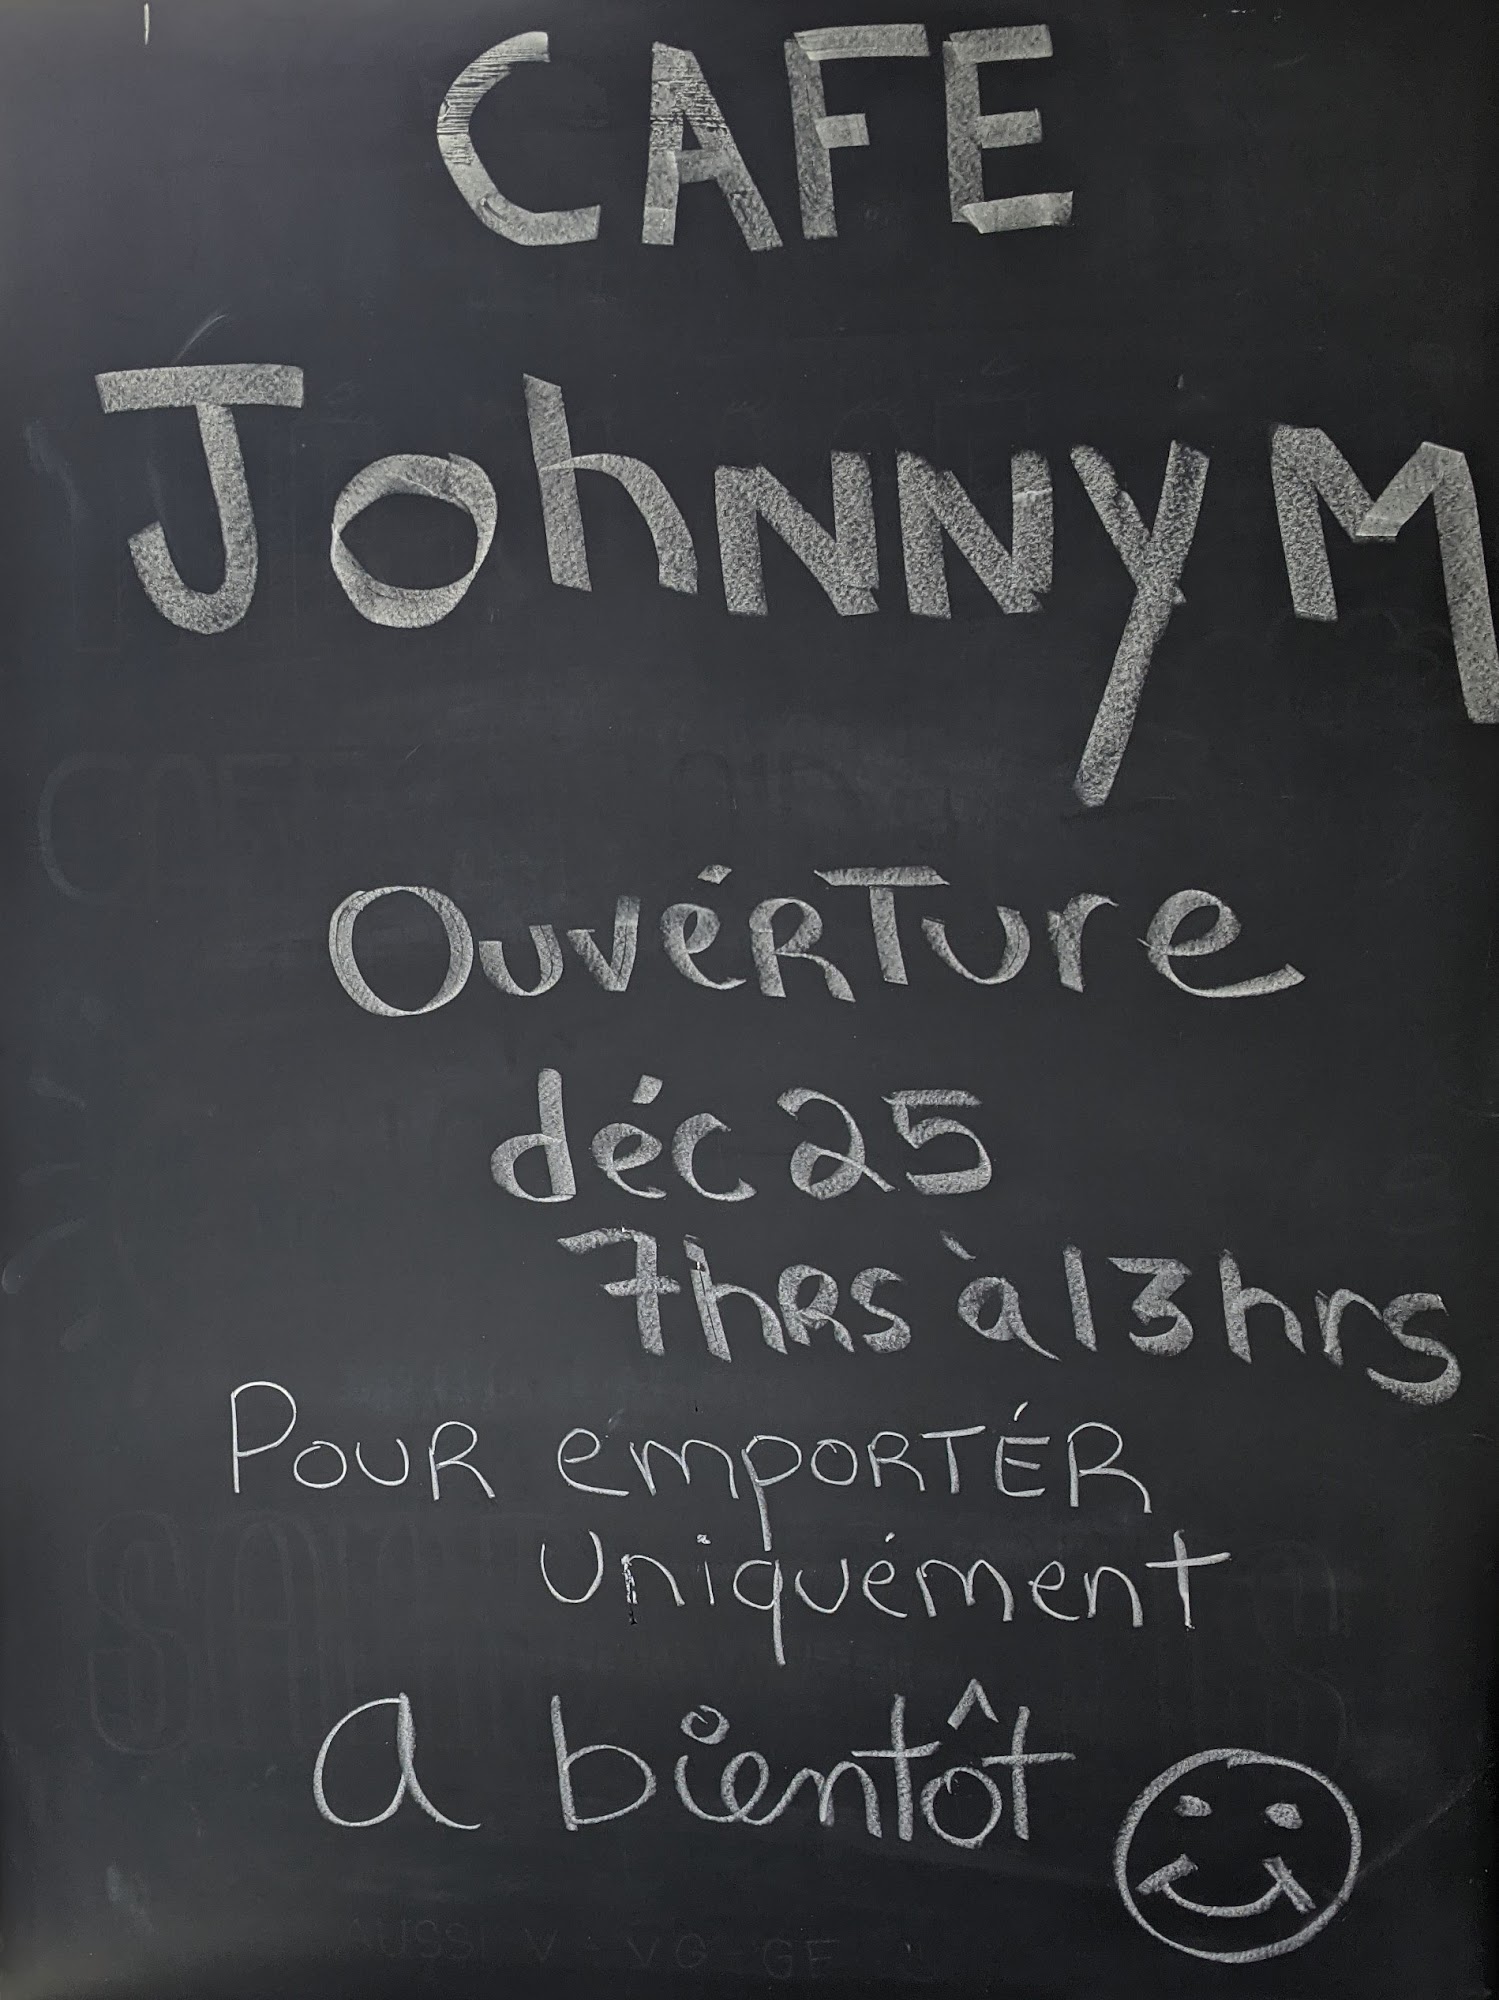 CAFE
Johnny M
Ouvérture
déc 25
7hrs à 13hrs
Pour emportér
uniquément
A bientôt